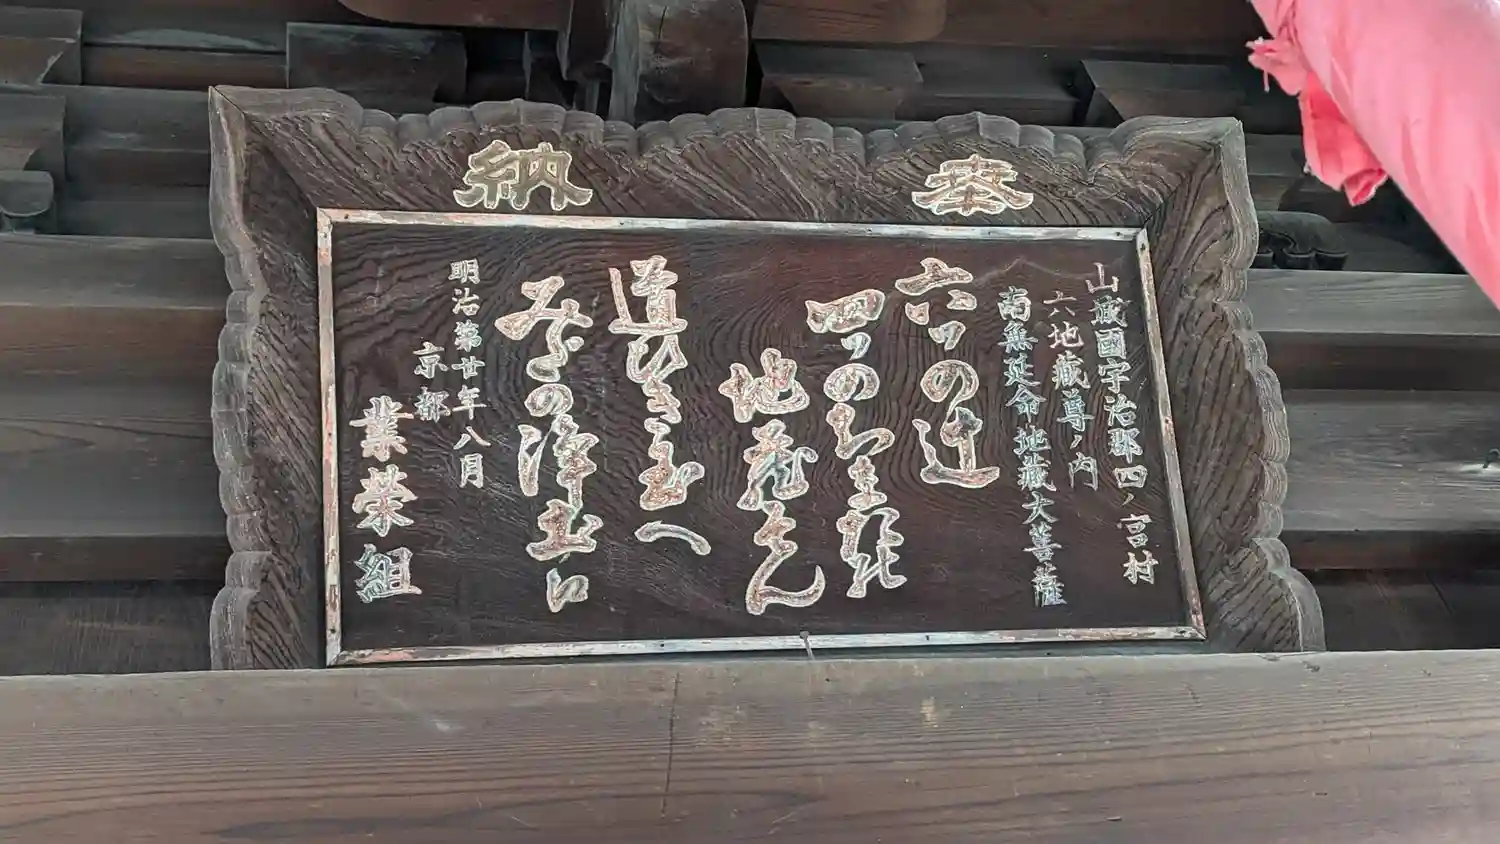 奉納
山城國宇治郡四ノ宮村
六地藏尊ノ内
南無延命地藏大菩薩
六つの辻
四つのち
地蔵そん
道びき玉へ
みだの浄土に
明治第廿年八月
京都
業榮組